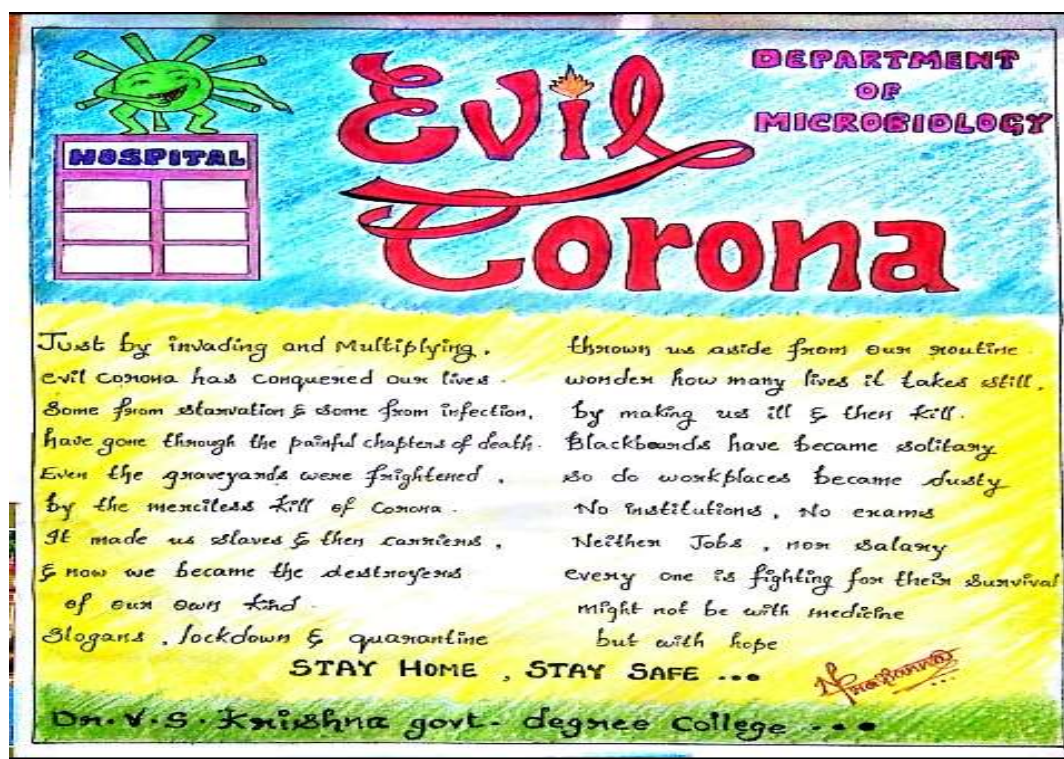 Evil
Corona
DEPARTMENT
OF
MICROBIOLOGY
HOSPITAL
Just by invading and Multiplying,
evil corona has conquered our lives.
Some from starvation & some from infection,
have gone through the painful chapters of death.
Even the graveyards were frightened,
by the merciless kill of Corona.
It made us slaves & then carriers,
& now we became the destroyers
of our own kind.
Slogans, lockdown & quarantine
thrown us aside from our routine.
wonder how many lives it takes still,
by making us ill & then kill.
Blackboards have became solitary
so do workplaces became dusty
No institutions, No exams
Neither Jobs, nor salary
every one is fighting for their survival
might not be with medicine
but with hope
STAY HOME, STAY SAFE ...
Dr. V. S. Krishna govt. degree College ...